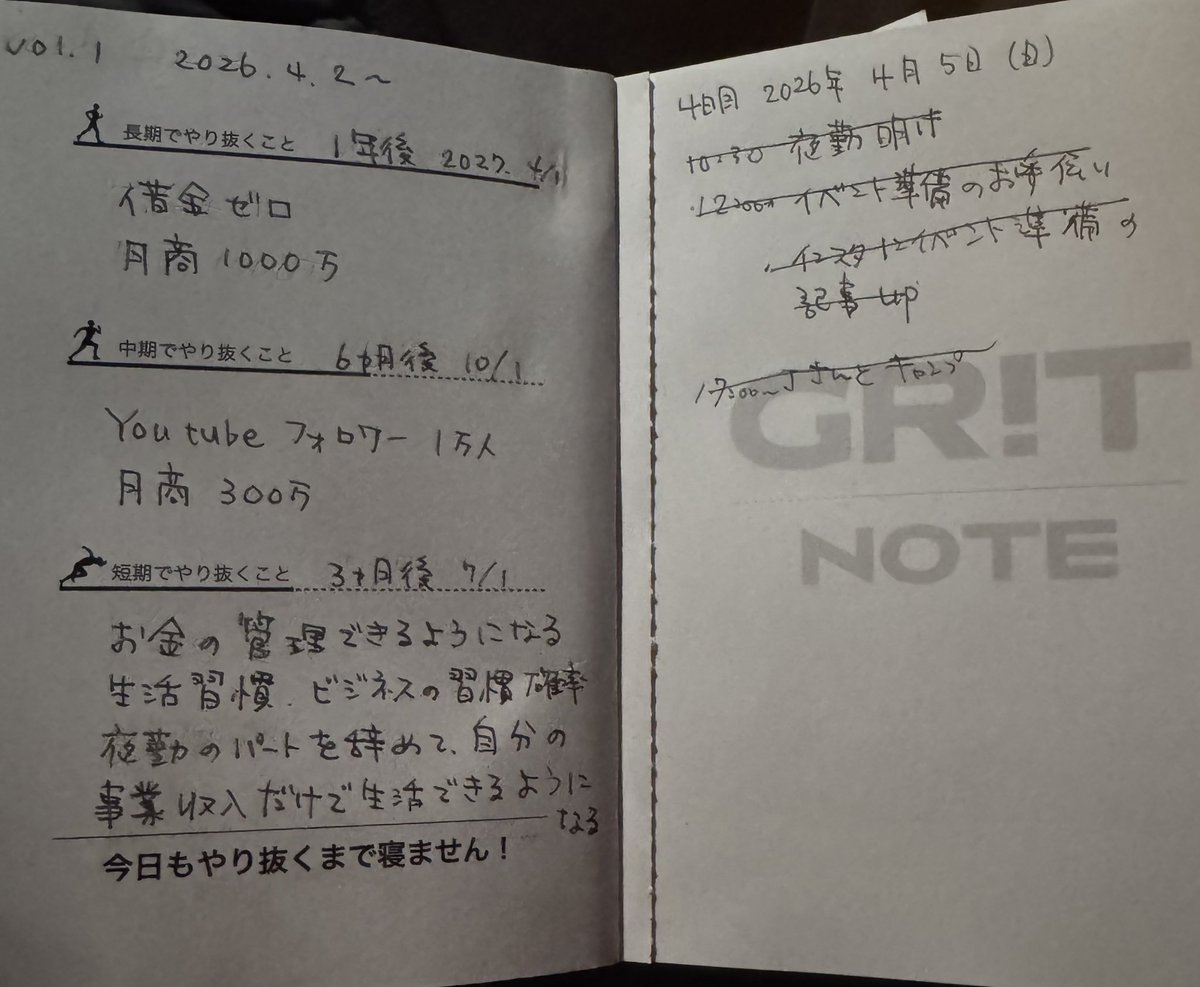 vol.1 2026.4.2～
長期でやり抜くこと 1年後 2027.4/1
借金ゼロ
月商1000万
中期でやり抜くこと 6ヶ月後 10/1
Youtube フォロワー 1万人
月商 300万
短期でやり抜くこと 3ヶ月後 7/1
お金の管理できるようになる
生活習慣、ビジネスの習慣確率
夜勤のパートを辞めて、自分の
事業収入だけで生活できるように
なる
今日もやり抜くまで寝ません！
4日目 2026年 4月5日(日)
10:30 夜勤明け
・12:00 イベント準備のお手伝い
・インスタにイベント準備の
記事up
17:00～ さんと キャンプ
GR!T
NOTE